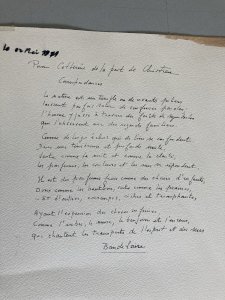 Pour Catherine de la part de Christian
Correspondances
La nature est un temple où de vivants piliers
Laissent parfois sortir de confuses paroles
L'homme y passe à travers des forêts de symboles
Qui l'observent avec des regards familiers
Comme de longs échos qui de loin se confondent
Dans une ténébreuse et profonde unité
Vaste comme la nuit et comme la clarté,
Les parfums, les couleurs et les sons se répondent
Il est des parfums frais comme des chairs d'enfants,
Doux comme les hautbois, verts comme les prairies,
- Et d'autres, corrompus, riches et triomphants,
Ayant l'expansion des choses infinies,
Comme l'ambre, le musc, le benjoin et l'encens,
Qui chantent les transports de l'esprit et des sens
Baudelaire